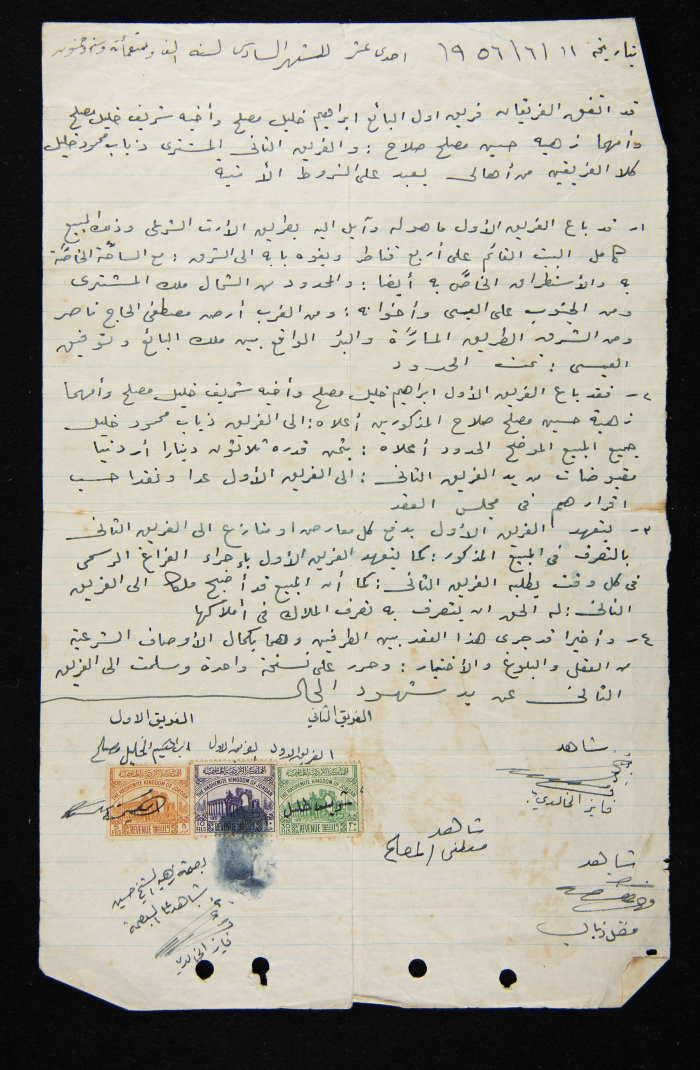 بتاريخ ١١/٦/١٩٥٦ احدى عشر للشهر السادس لسنة الف وتسعمائة وستة وخمسون
قد اتفق الفريقان فريق اول البائع ابراهيم خليل مصلح وأخيه شريف خليل مصلح
وأمهما زهية حسين مصلح صلاح : والفريق الثاني المشتري ذياب محمود خليل
كلا الفريقين من أهالي يعبد على الشروط الآتية
١- قد باع الفريق الأول ما هو له وآيل اليه بطريق الأرث الشرعي وذلك المبيع
كامل البيت القائم على أربع قناطر ويفوه بابه الى الشرق : مع الساحة الخاصّة
به والأستطراق الخاصّ به أيضا : والحدود من الشمال ملك المشتري
ومن الجنوب على العيسى وأخوانه : ومن الغرب أرض مصطفى الحاج ناصر
ومن الشرق الطريق المارّة والبئر الواقع بين ملك البائع وتوفيق
العيسى : تمت الحدود
٢- فقد باع الفريق الأول ابراهيم خليل مصلح وأخيه شريف خليل مصلح وأمهما
زهية حسين مصلح صلاح المذكورين أعلاه : الى الفريق ذياب محمود خليل
جميع المبيع الموضح الحدود أعلاه : بثمن قدره ثلاثون دينارا أردنيا
مقبوضات من يد الفريق الثاني : الى الفريق الأول عدا ونقدا حسب
اقرارهم في مجلس العقد
٣- يتعهد الفريق الأول بدفع كل معارض او منازع الى الفريق الثاني
بالتصرف في المبيع المذكور : كما يتعهد الفريق الأول بإجراء الفراغ الرسمي
في كل وقت يطلبه الفريق الثاني : كما أن المبيع قد أضبح ملكا الى الفريق
الثاني : له الحق ان يتصرف به تصرف الملاك في أملاكها
٤- وأخيرا قد جرى هذا العقد بين الطرفين وهما بكمال الأوصاف الشرعية
من العقل والبلوغ والأختيار : وحرر على نسختة واحدة وسلمت الى الفريق
الثاني عن يد شهود الحال
الفريق الثاني
الفريق الاول
الفريق الاول
الفريق الاول
ابراهيم الخليل مصلح
المملكة الأردنية الهاشمية
THE HASHEMITE KINGDOM OF JORDAN
REVENUE
FILS
المملكة الأردنية الهاشمية
THE HASHEMITE KINGDOM OF JORDAN
REVENUE
FILS
المملكة الأردنية الهاشمية
THE HASHEMITE KINGDOM OF JORDAN
REVENUE
شاهد
فايز الخالدي
شاهد
المصلح
شاهد
ذياب
بصمة زهية الشيخ حسين
شاهد على البصمة
فايز الخالدي